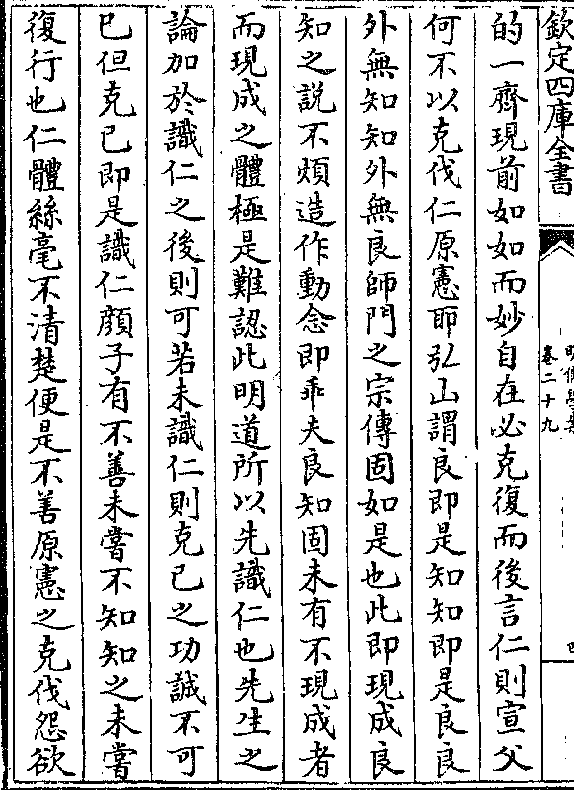 欽定四庫全書
明儒學案
卷二十九
四
的一齊現前如如而妙自在必克復而後言仁則宣父
何不以克伐仁原憲耶弘山謂良即是知知即是良良
外無知知外無良師門之宗傳固如是也此即現成良
知之説不煩造作動念即乖夫良知固未有不現成者
而現成之體極是難認此明道所以先識仁也先生之
論加於識仁之後則可若未識仁則克已之功誠不可
已但克已即是識仁顔子有不善未嘗不知知之未嘗
復行也仁體絲毫不清楚便是不善原憲之克伐怨欲